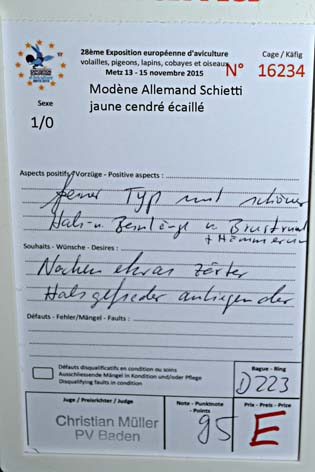 28ème Exposition européenne d'aviculture
volailles, pigeons, lapins, cobayes et oiseaux
Metz 13 - 15 novembre 2015
Cage / Käfig
N° 16234
Modène Allemand Schietti
jaune cendré écaillé
Sexe
1/0
Aspects positifs / Vorzüge - Positive aspects :
feiner Typ und schöner
Hals- u. Beinlänge u. Brustrund
+ Hämmerung
Souhaits - Wünsche - Desires :
Nacken etwas zarter
Halsgefieder anliegender
Défauts - Fehler/Mängel - Faults :
Défauts disqualificatifs en condition ou soins
Ausschliessende Mängel in Kondition und/oder Pflege
Disqualifying faults in condition
Bague - Ring
D223
Juge / Preisrichter / Judge
Christian Müller
PV Baden
Note - Punktnote
- Points
95
Prix - Preis - Prize
E